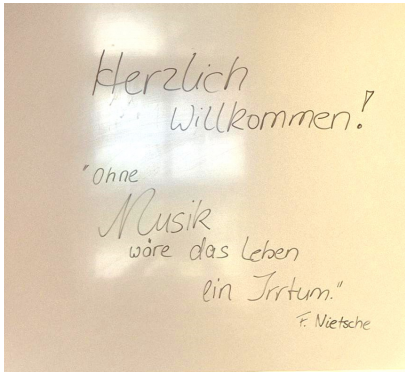 Herzlich
Willkommen!
"Ohne
Musik
wäre das Leben
ein Irrtum."
F. Nietsche